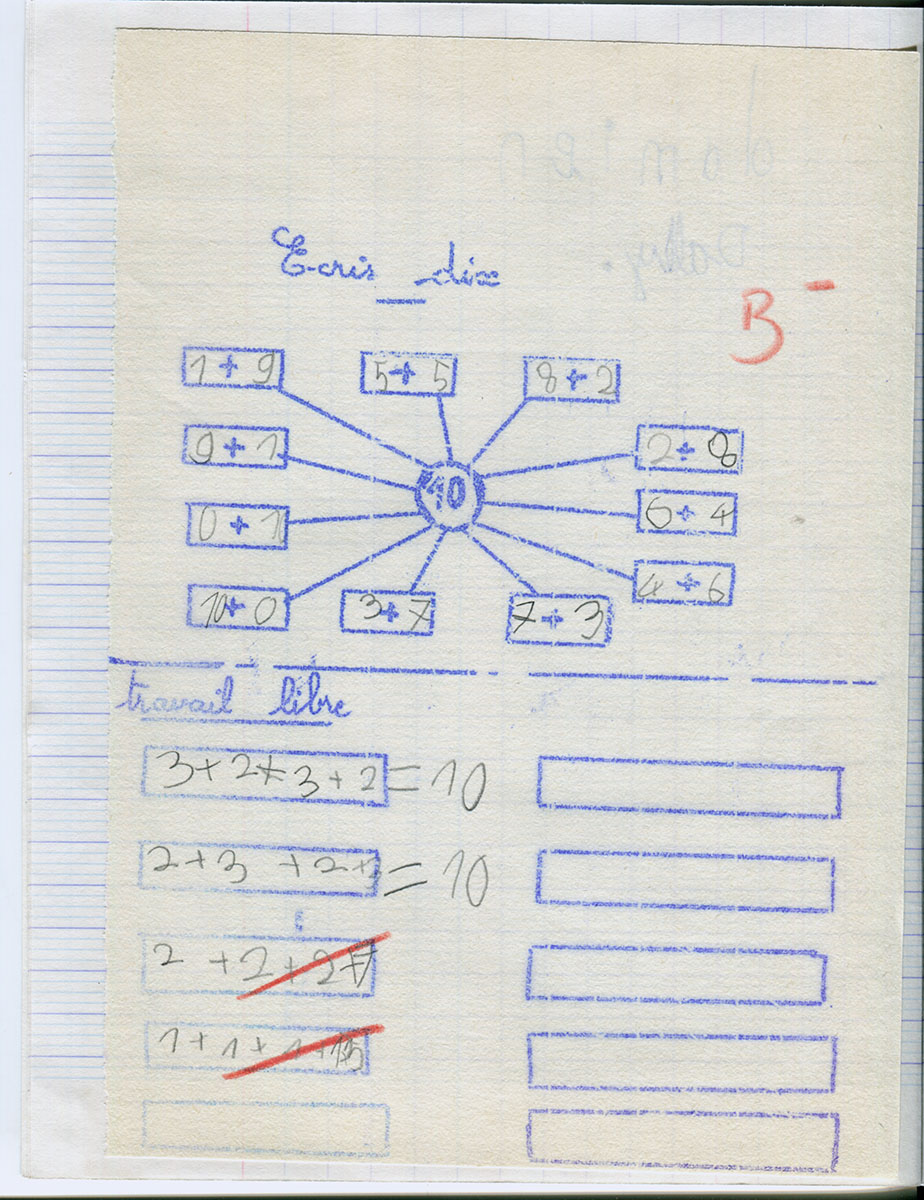 Ecris dix
B-
1 + 9
5 + 5
8 + 2
9 + 1
2 + 8
10
0 + 1
6 + 4
4 + 6
10+ 0
3+ 7
7 + 3
travail libre
3+2+3+2 = 10
2+3 +2+3 = 10
2 +2+2+7
1 + 1 + 1 +